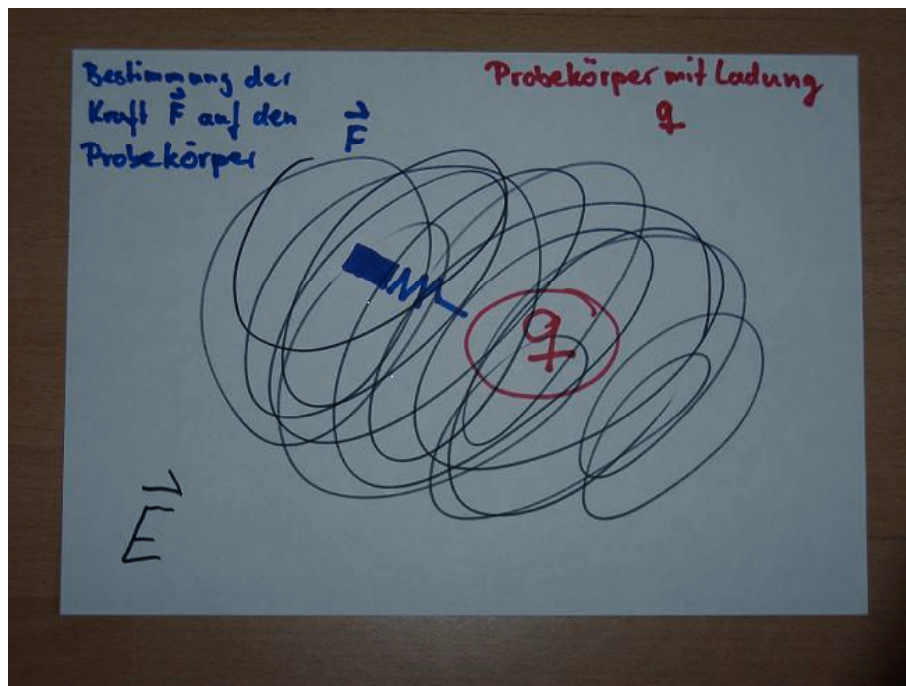 Bestimmung der
Kraft F⃗ auf den
Probekörper
F⃗
Probekörper mit Ladung
q
q
E⃗